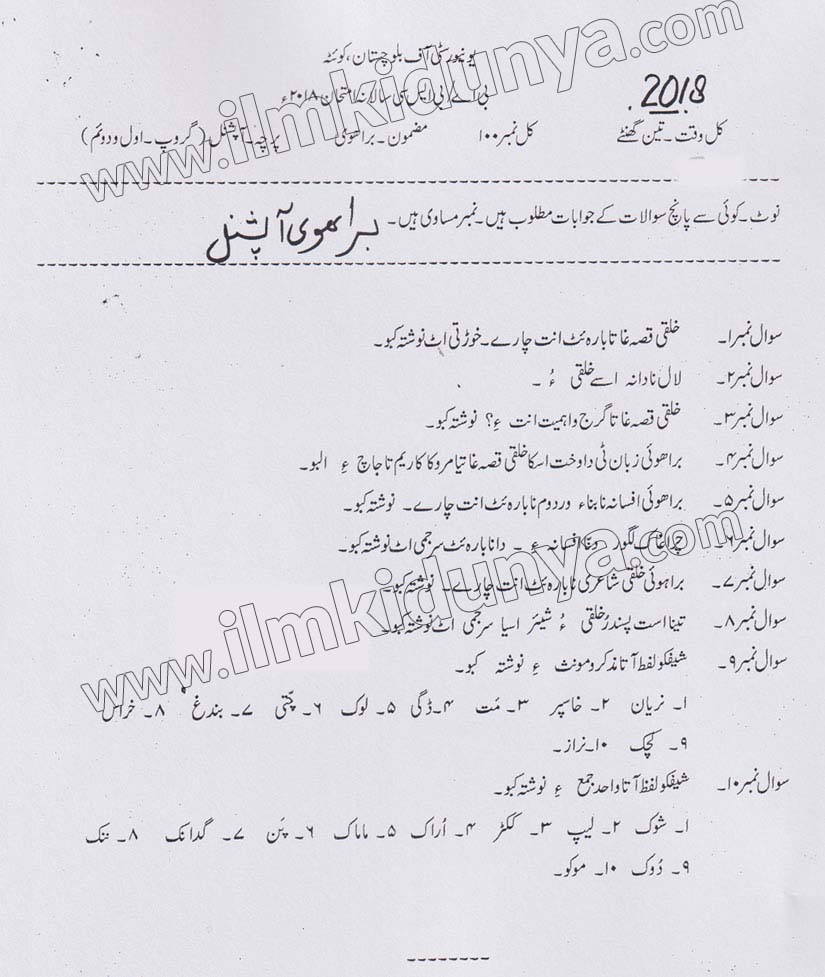 یونیورسٹی آف بلوچستان، کوئٹہ
بی اے/بی ایس سی سالانہ امتحان ۲۰۱۸ء
2018
کل وقت۔ تین گھنٹے کل نمبر ۱۰۰ مضمون۔ براھوی پرچہ۔ آپشنل۔ (گروپ۔ اول و دوئم)
نوٹ۔ کوئی سے پانچ سوالات کے جوابات مطلوب ہیں۔ نمبر مساوی ہیں۔
براھوی آپشنل
سوال نمبر۱۔ خلقی قصہ غاتا بارہ ئٹ انت چارے۔ خوڑتی اٹ نوشتہ کبو۔
سوال نمبر۲۔ لال نا دانہ اسے خلقی ءُ ۔
سوال نمبر۳۔ خلقی قصہ غاتا گرج و اہمیت انت ءِ؟ نوشتہ کبو۔
سوال نمبر۴۔ براھوئی زبان ٹی داوخت اسکا خلقی قصہ غاتیا مروکا کاریم تا جاچ ءِ البو۔
سوال نمبر۵۔ براھوئی افسانہ نا بناء وردوم نا بارہ ئٹ انت چارے۔ نوشتہ کبو۔
سوال نمبر۶۔ چراغاک لگور دنّا افسانہ ءِ ۔ دانا بارہ ئٹ سرجمی اٹ نوشتہ کبو۔
سوال نمبر۷۔ براہوئی خلقی شاعری نا بارہ ئٹ انت چارے۔ نوشتہ کبو۔
سوال نمبر۸۔ تینا است پسندُر خلقی ءُ شیئر اسیا سرجمی اٹ نوشتہ کبو۔
سوال نمبر۹۔ شیفکو لفظ آتا مذکر و مونث ءِ نوشتہ کبو۔
۱۔ نریان ۲۔ خاسپر ۳۔ مَت ۴۔ ڈگی ۵۔ لوک ۶۔ پتّی ۷۔ بندغ ۸۔ خراس
۹۔ کچک ۱۰۔ نراز۔
سوال نمبر۱۰۔ شیفکو لفظ آتا واحد جمع ءِ نوشتہ کبو۔
۱۔ شوک ۲۔ لیپ ۳۔ ککڑ ۴۔ اُراک ۵۔ ماماک ۶۔ پَن ۷۔ گدانک ۸۔ ننک
۹۔ دُوک ۱۰۔ موکو۔
www.ilmkidunya.com
www.ilmkidunya.com